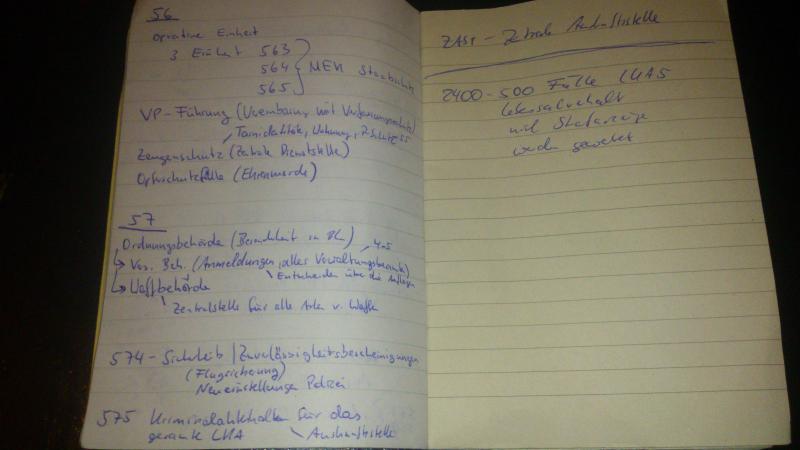 56
Operative Einheit
3 Einheit 563
564 MEK Staatsschutz
565
VP-Führung (Vereinbarung mit Verfassungsschutz)
Tarnidentität, Wohnung, ZSchutz §§
Zeugenschutz (Zentrale Dienststelle)
Opferschutzfälle (Ehrenmorde)
57
Ordnungsbehörde (Besonderheit in Bln)
Vers. Beh. (Anmeldungen, alles Verwaltungsbeamte) 4-5
Entscheiden über die Auflagen
Waffbehörde
Zentralstelle für alle Arten v. Waffen
574 - Sicherheit / Zuverlässigkeitsbescheinigungen
(Flugsicherung)
Neueinstellungen Polizei
575 Kriminalakten für das
gesamte LKA
Auskunftsstelle
ZASt - Zentrale Auskunftsstelle
2400-500 Fälle LKA5
und Strafanzeige
werden